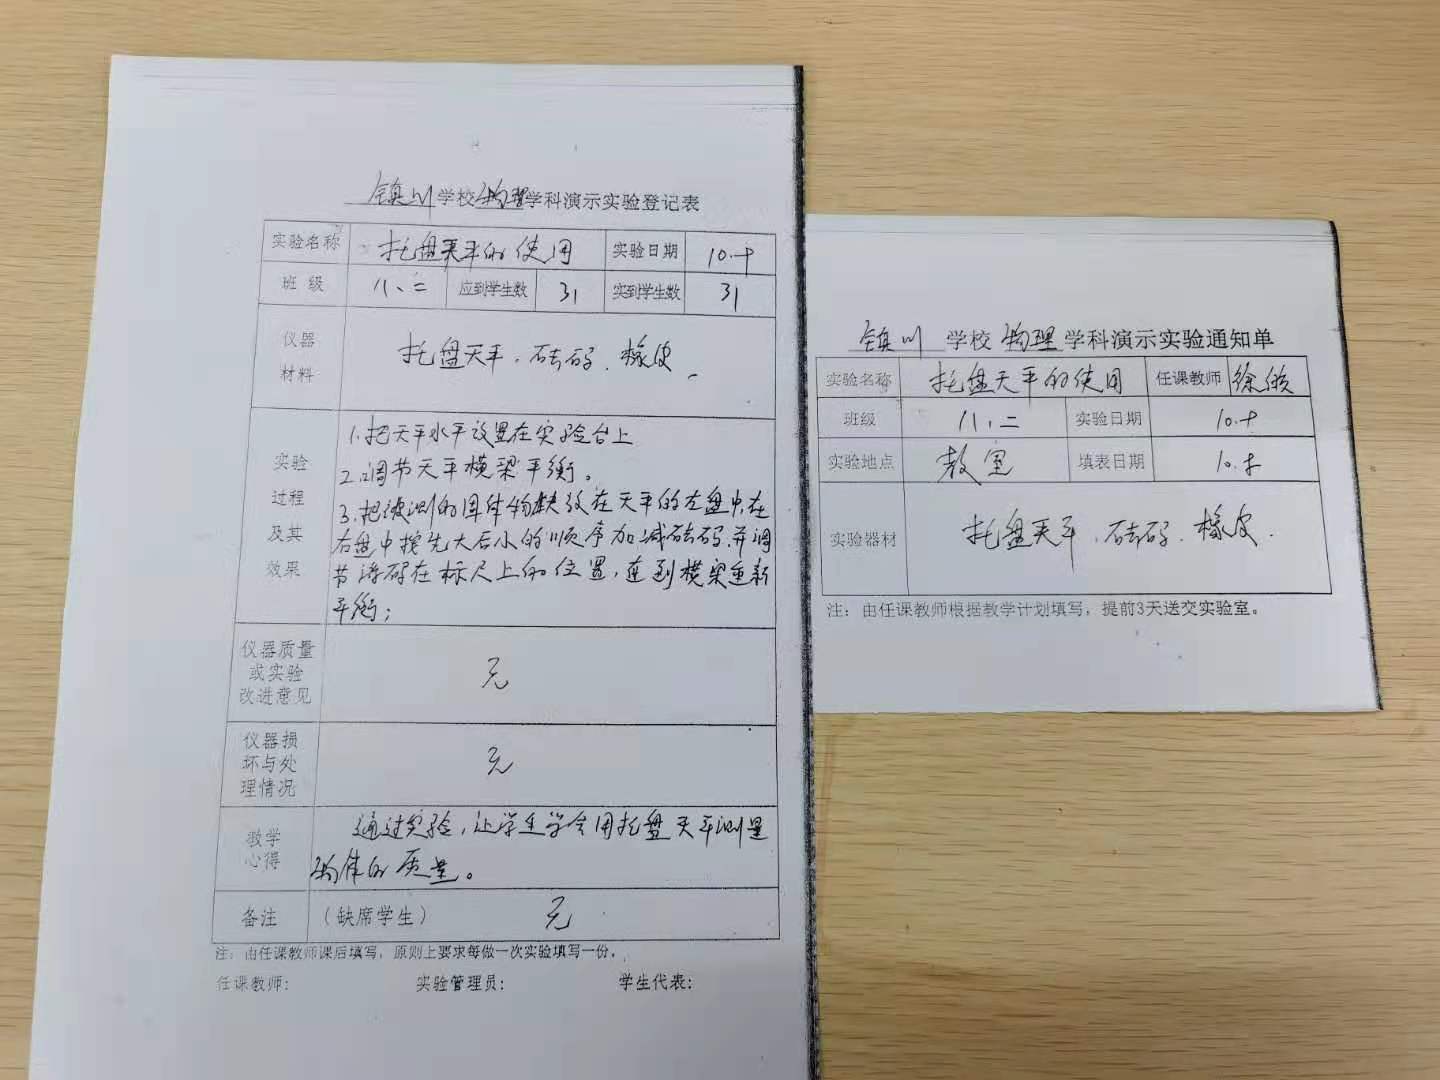 镇川学校物理学科演示实验登记表
实验名称 托盘天平的使用 实验日期 10.十
班 级 八、二 应到学生数 31 实到学生数 31
仪器
材料
托盘天平、砝码、橡皮
实验
过程
及其
效果
1.把天平水平放置在实验台上
2.调节天平横梁平衡。
3.把被测的固体物块放在天平的左盘中,在
右盘中按先大后小的顺序加减砝码,并调
节游码在标尺上的位置,直到横梁重新
平衡;
仪器质量
或实验
改进意见
无
仪器损
坏与处
理情况
无
教学
心得
通过实验,让学生学会用托盘天平测量
物体的质量。
备注 (缺席学生) 无
注:由任课教师课后填写,原则上要求每做一次实验填写一份。
任课教师: 实验管理员: 学生代表:
镇川 学校 物理 学科演示实验通知单
实验名称 托盘天平的使用 任课教师 徐
班级 八、二 实验日期 10.十
实验地点 教室 填表日期 10.
实验器材 托盘天平、砝码、橡皮.
注:由任课教师根据教学计划填写,提前3天送交实验室。